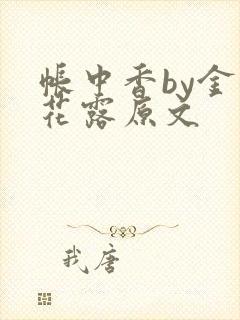 帐中香by金
花露原文
我唐